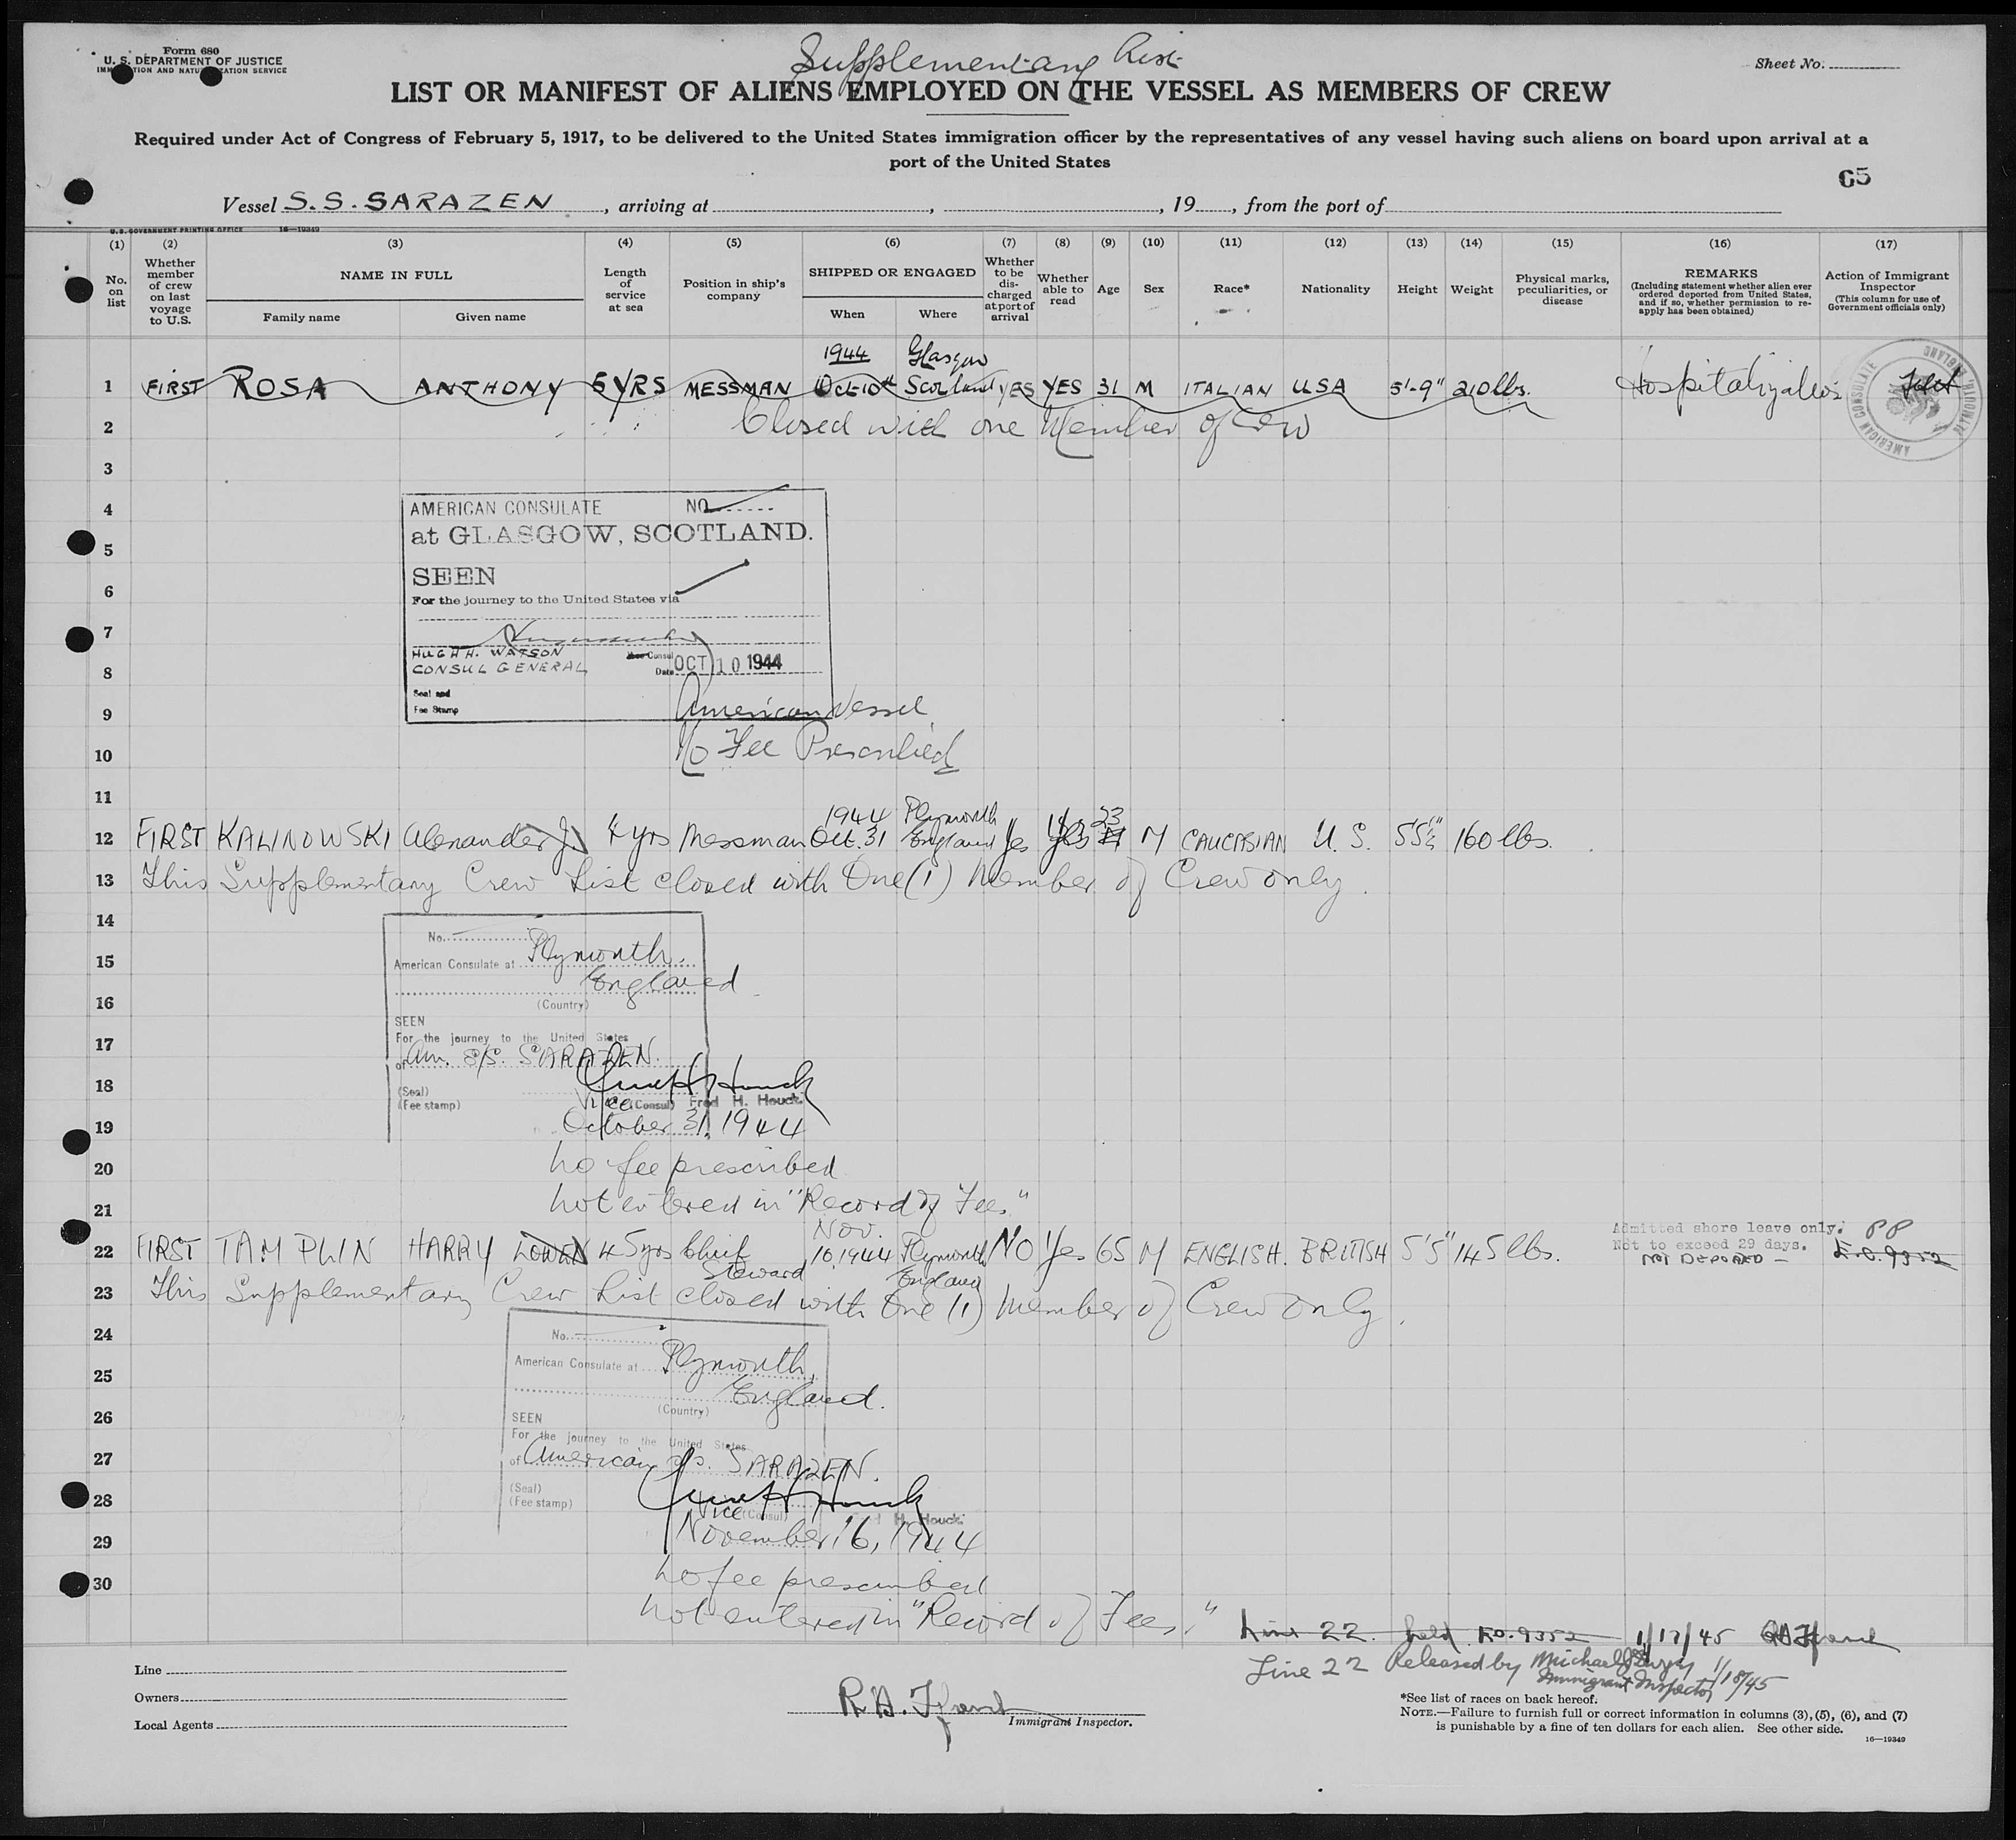 Form 680
U. S. DEPARTMENT OF JUSTICE
IMMIGRATION AND NATURALIZATION SERVICE
Supplementary List
Sheet No.
LIST OR MANIFEST OF ALIENS EMPLOYED ON THE VESSEL AS MEMBERS OF CREW
Required under Act of Congress of February 5, 1917, to be delivered to the United States immigration officer by the representatives of any vessel having such aliens on board upon arrival at a
port of the United States
65
Vessel S.S. SARAZEN, arriving at , , 19 , from the port of
U. S. GOVERNMENT PRINTING OFFICE 16—19349
(1) (2) (3) (4) (5) (6) (7) (8) (9) (10) (11) (12) (13) (14) (15) (16) (17)
No. on list
Whether member of crew on last voyage to U.S.
NAME IN FULL
Family name
Given name
Length of service at sea
Position in ship's company
SHIPPED OR ENGAGED
When
Where
Whether to be discharged at port of arrival
Whether able to read
Age
Sex
Race*
Nationality
Height
Weight
Physical marks, peculiarities, or disease
REMARKS
(Including statement whether alien ever ordered deported from United States, and if so, whether permission to reapply has been obtained)
Action of Immigrant Inspector
(This column for use of Government officials only)
1944 Glasgow
1 FIRST ROSA ANTHONY 5 YRS MESSMAN Oct-10th Scotland YES YES 31 M ITALIAN USA 5'-9" 210 lbs.
AMERICAN CONSULATE
2 Closed with one Member of Crew
3
4 AMERICAN CONSULATE NO
at GLASGOW, SCOTLAND.
5
SEEN
6 For the journey to the United States via
7
HUGH H. WATSON
CONSUL GENERAL
Vice Consul
8 Date OCT 10 1944
Seal and
Fee Stamp
9 American Vessel
10 No Fee Prescribed
11
1944 Plymouth
12 FIRST KALINOWSKI Alexander J. 4 yrs Messman Oct. 31 England Yes Yes 23 M CAUCASIAN U. S. 5'5½" 160 lbs.
13 This Supplementary Crew List closed with One (1) Member of Crew only.
14
No.
15 American Consulate at Plymouth,
England
16 (Country)
SEEN
17 For the journey to the United States
of Am. S/S. SARAZEN.
18 (Seal)
(Fee stamp)
Vice (Consul) Fred H. Houck
19 October 31, 1944
20 no fee prescribed
21 not entered in "Record of Fees"
Nov.
22 FIRST TAMPLIN HARRY LOWEN 45 yrs Chief Steward 16, 1944 Plymouth England NO Yes 65 M ENGLISH. BRITISH 5'5" 145 lbs.
Admitted shore leave only.
Not to exceed 29 days.
NOT DEPORTED —
PP
E.O. 9352
23 This Supplementary Crew List closed with One (1) Member of Crew only.
24 No.
25 American Consulate at Plymouth,
England.
26 (Country)
SEEN
27 For the journey to the United States
of American S/S. SARAZEN.
28 (Seal)
(Fee stamp)
Vice (Consul) H. Houck
29 November 16, 1944
30 no fee prescribed
not entered in "Record of Fees."
Line 22. held E.O. 9352 1/17/45
Line 22 Released by Michael
Immigrant Inspector 1/18/45
Line
Owners
Local Agents
Immigrant Inspector.
*See list of races on back hereof.
NOTE.—Failure to furnish full or correct information in columns (3), (5), (6), and (7)
is punishable by a fine of ten dollars for each alien. See other side.
16—19349